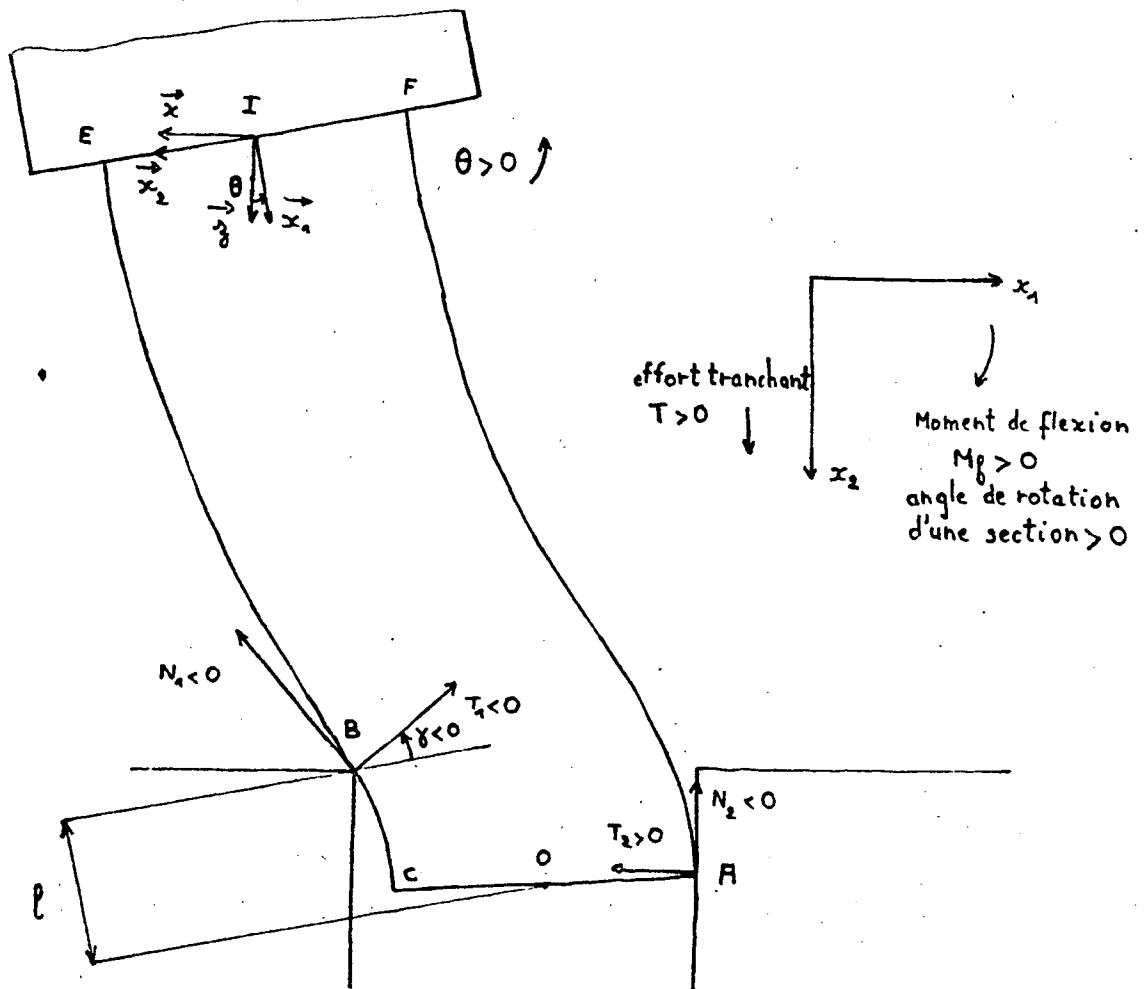 F
I
x
E
x₂
θ
z
x₁
θ>0
x₁
effort tranchant
T>0
Moment de flexion
Mf>0
x₂
angle de rotation
d'une section>0
N₁<0
T₁<0
B
γ<0
N₂<0
T₂>0
O
A
C
l